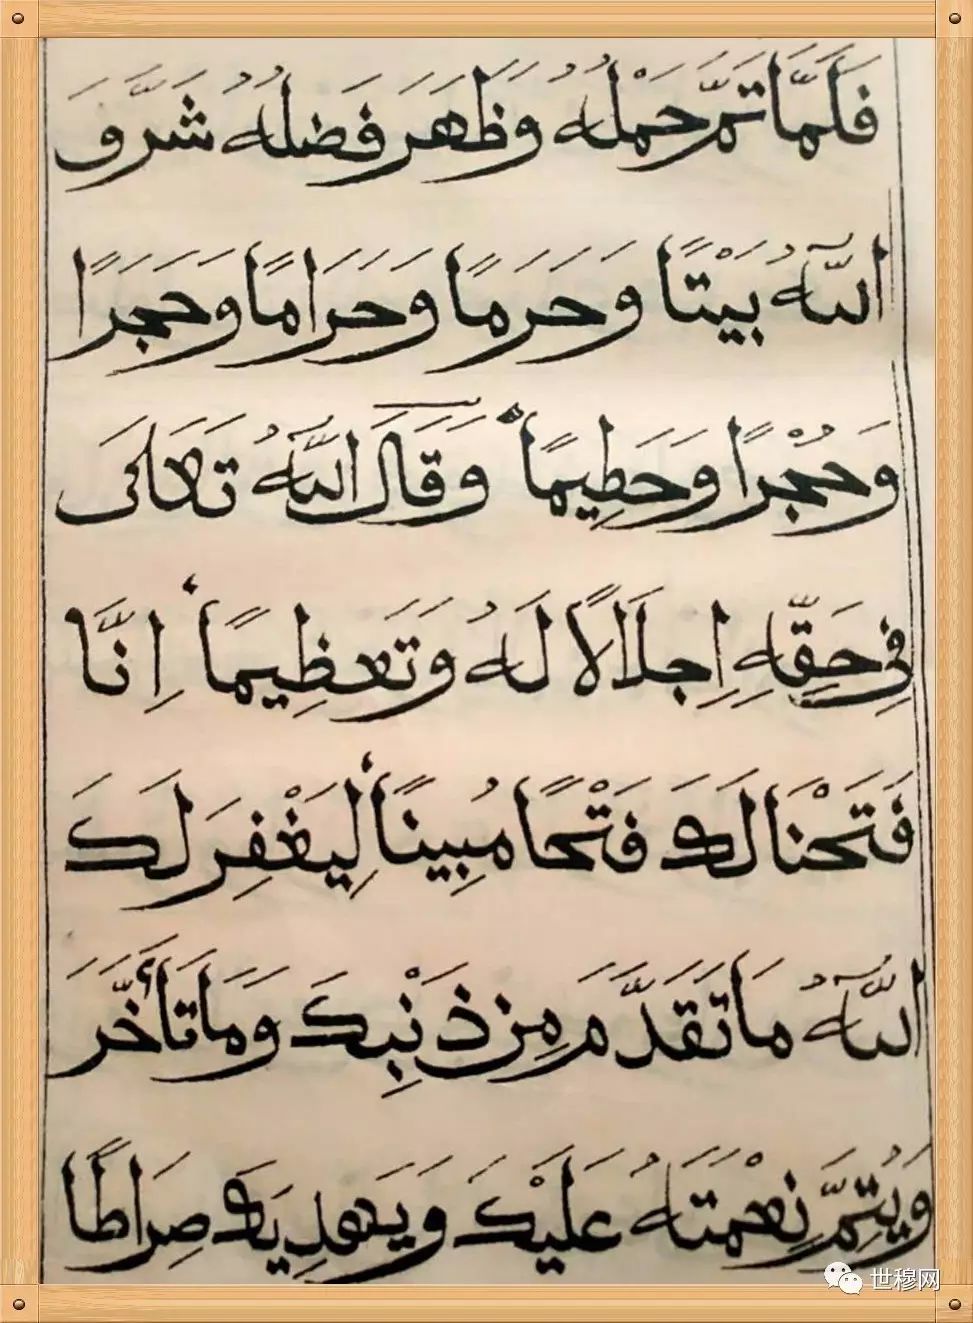 فَلَمَّا تَمَّ حَمْلُهُ وَظَهَرَ فَضْلُهُ شَرَّفَ
اللّٰهُ بَيْتًا وَحَرَمًا وَحَرَامًا وَحَجَرًا
وَحُجْرًا وَحَطِيمًا وَقَالَ اللّٰهُ تَعَالَى
فِي حَقِّهِ اِجْلَالًا لَهُ وَتَعْظِيمًا اِنَّا
فَتَحْنَا لَكَ فَتْحًا مُبِينًا لِيَغْفِرَ لَكَ
اللّٰهُ مَا تَقَدَّمَ مِنْ ذَنْبِكَ وَمَا تَأَخَّرَ
وَيُتِمَّ نِعْمَتَهُ عَلَيْكَ وَيَهْدِيَكَ صِرَاطًا
世穆网